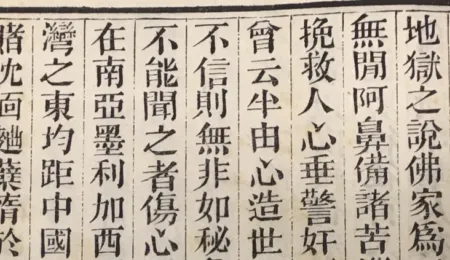 地獄之說佛家爲
無閒阿鼻備諸苦
挽救人心垂警奸
曾云半由心造世
不信則無非如秘
不能聞之者傷心
在南亞墨利加西
灣之東均距中國
賭沈湎麯蘖惰於